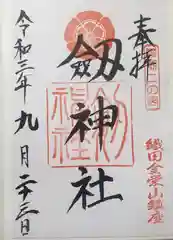 奉拝
越前二の宮
織田金栄山鎮座
劔神社
劔神社
令和三年九月二十三日